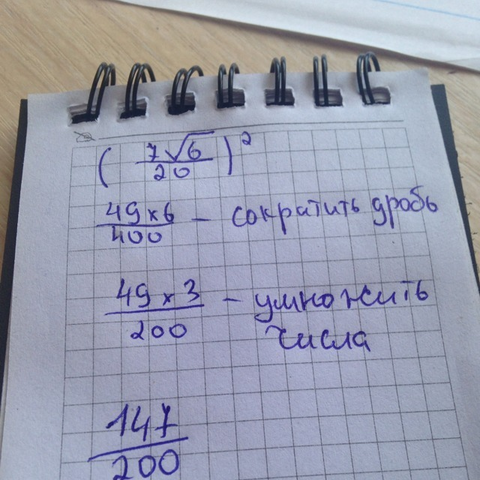 (7√6/20)²
49×6/400 – сократить дробь
49×3/200 – умножить
числа
147/200